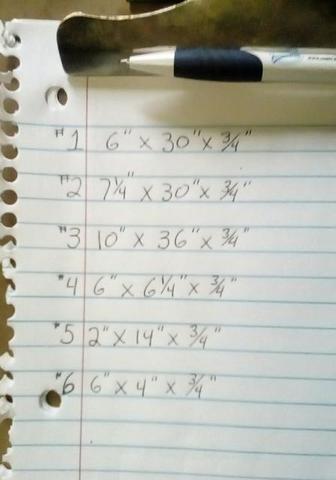 #1 6" x 30" x 3/4"
#2 7 1/4" x 30" x 3/4"
#3 10" x 36" x 3/4"
#4 6" x 6 1/4" x 3/4"
#5 2" x 14" x 3/4"
#6 6" x 4" x 3/4"